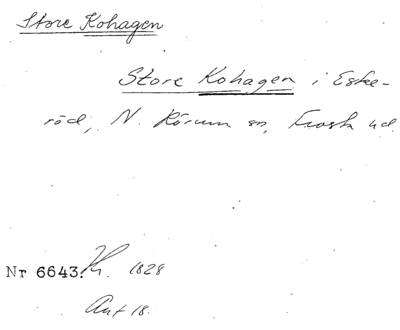 Store Kohagen
Store Kohagen i Eske-
röd, N. Rörum sn, Frosta hd.
Nr 6643. Kr. 1828
Ant 18.